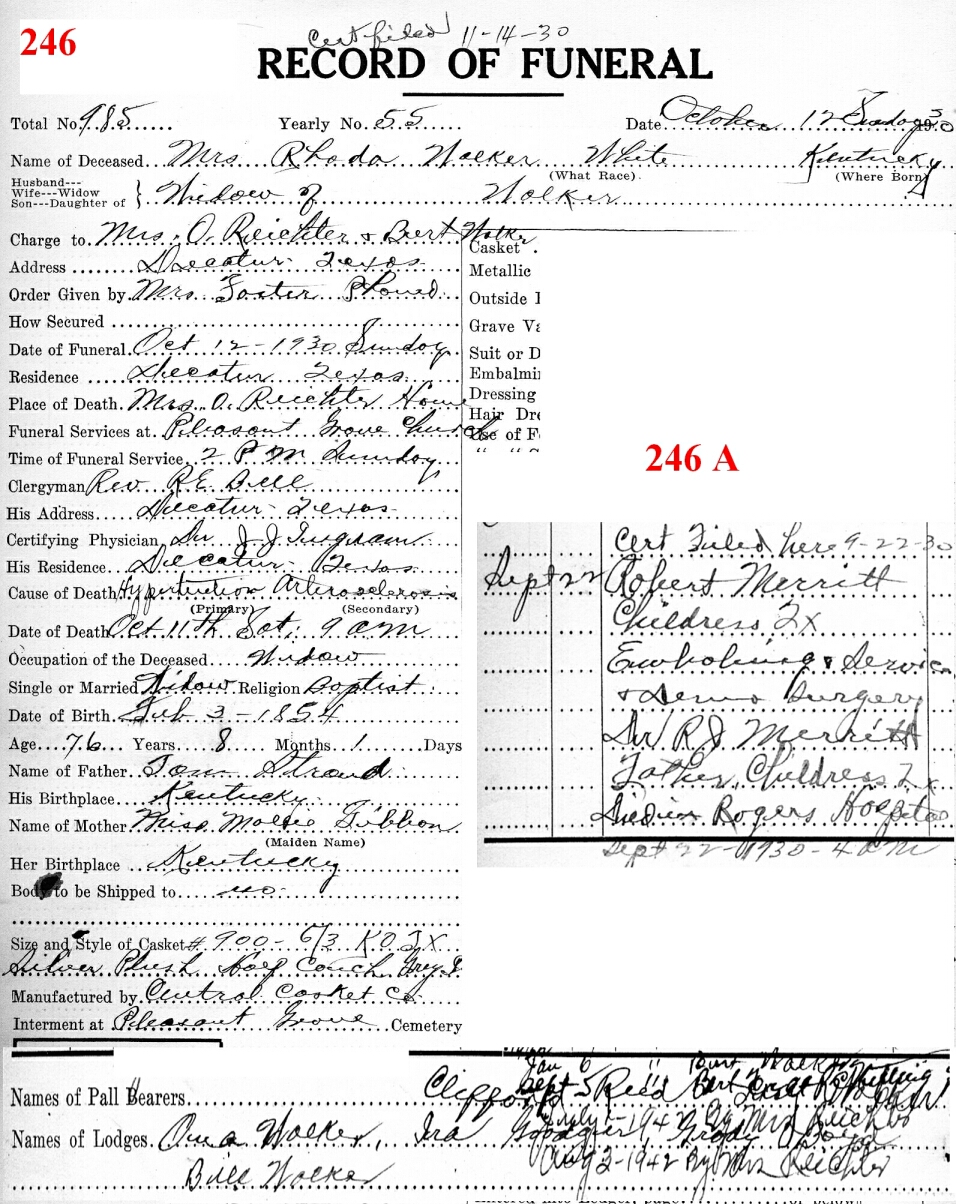 246
Cert filed 11-14-30
RECORD OF FUNERAL
Total No. 985 Yearly No. 55 Date October 12 Sunday 1930
Name of Deceased Mrs Rhoda Walker White Kentucky
(What Race) (Where Born)
Husband---
Wife---Widow
Son---Daughter of } Widow of Walker
Charge to Mrs. O. Reichter & Bert Walker
Address Decatur Texas
Order Given by Mrs Foster Phoned
How Secured
Date of Funeral Oct 12-1930 Sunday
Residence Decatur Texas
Place of Death Mrs. O. Reichter Home
Funeral Services at Pleasant Grove Church
Time of Funeral Service 2 P M Sunday
Clergyman Rev. R E Bell
His Address Decatur Texas
Certifying Physician Dr J J Ingram
His Residence Decatur Texas
Cause of Death Hypertention Arterosclerosis
(Primary) (Secondary)
Date of Death Oct 11th Sat, 9 am
Occupation of the Deceased Widow
Single or Married Widow Religion Baptist
Date of Birth Feb. 3-1854
Age 76 Years 8 Months 1 Days
Name of Father Tom Stroud
His Birthplace Kentucky
Name of Mother Miss Mollie Gibbon
(Maiden Name)
Her Birthplace Kentucky
Body to be Shipped to no
Size and Style of Casket # 900- 6/3 K D T X
Silver Plush Half Couch Grey
Manufactured by Central Casket Co
Interment at Pleasant Grove Cemetery
Casket
Metallic
Outside
Grave Va
Suit or D
Embalmi
Dressing
Hair Dre
Use of F
246 A
Cert Filed here 9-22-30
Sept 22 Robert Merritt
Childress, Tx
Embalming & Service
& Dermo Surgery
Dr R J Merritt
Father, Childress Tx
Died in Rogers Hospital
Sept 22-1930-4 am
Jan 6 " Burt Walker
Names of Pall Bearers Clifford Sept 5 Rec'd Bert
Names of Lodges Oma Walker, Ira July 1-1942 By Mrs Grady
Bill Walker Aug 3-1942 By Mrs Reichter